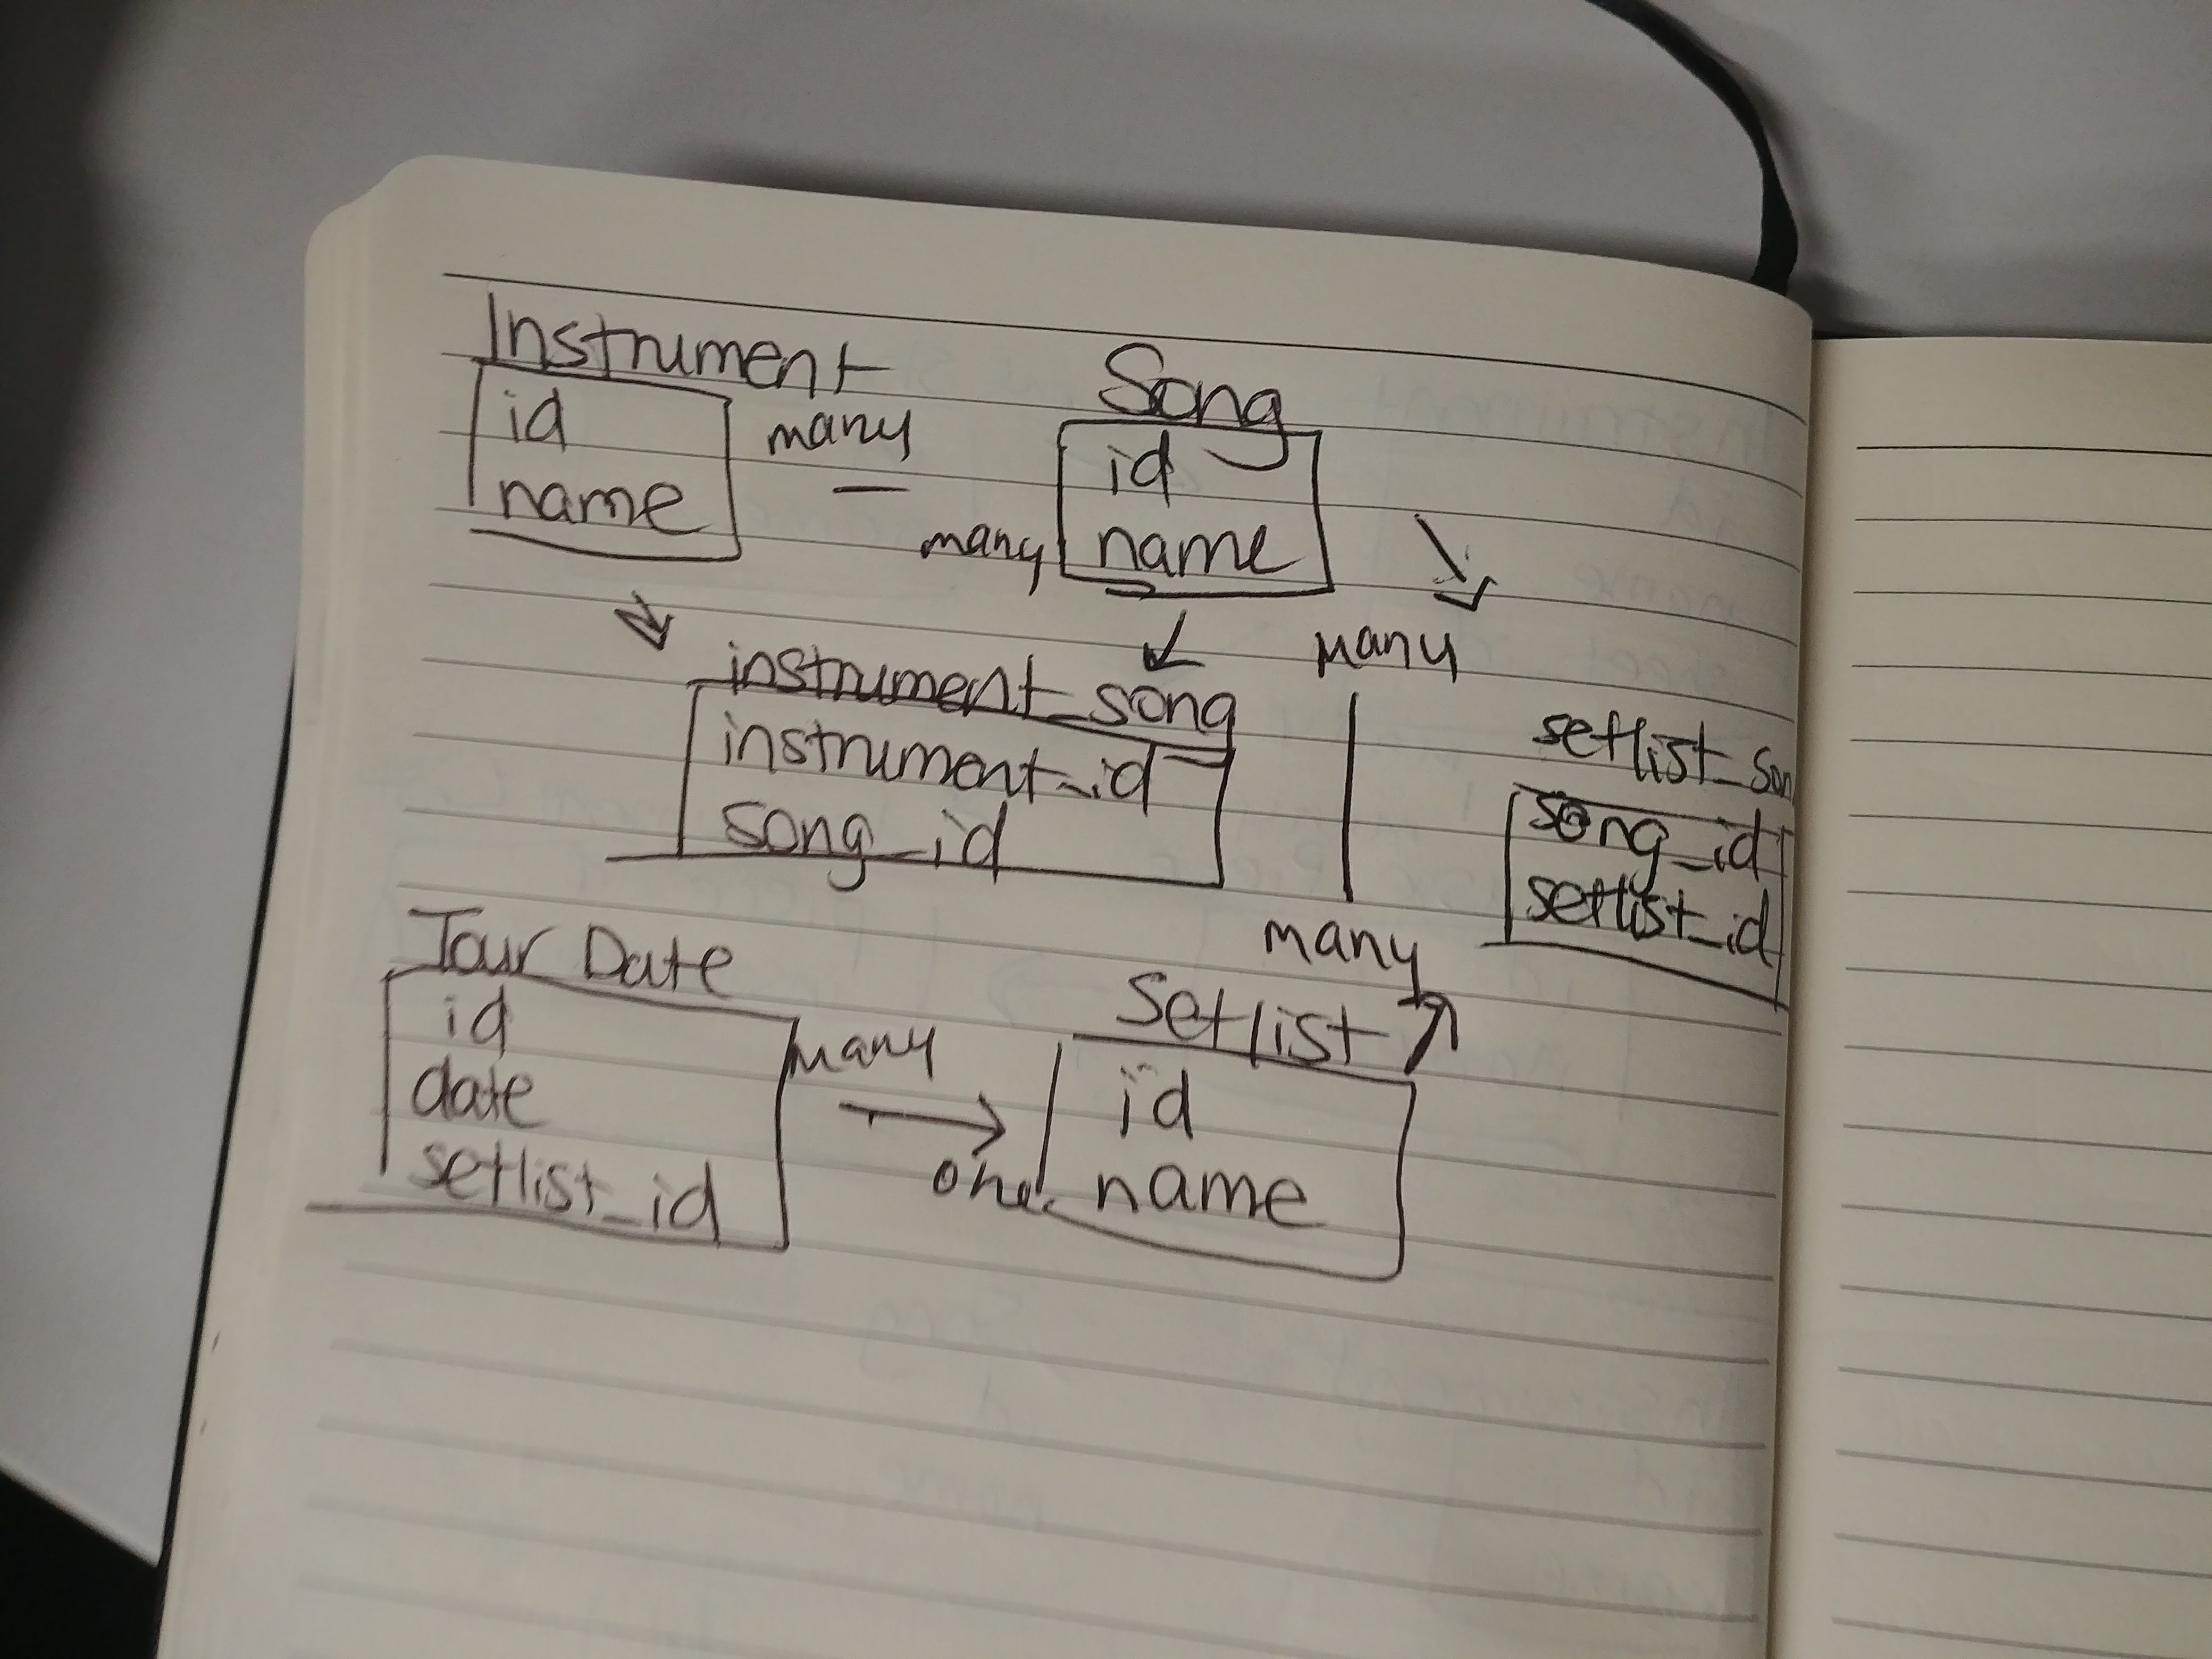 Instrument
id
name
many
many
Song
id
name
instrument_song
instrument_id
song_id
many
many
setlist_son
song_id
setlist_id
Tour Date
id
date
setlist_id
many
one
Setlist
id
name